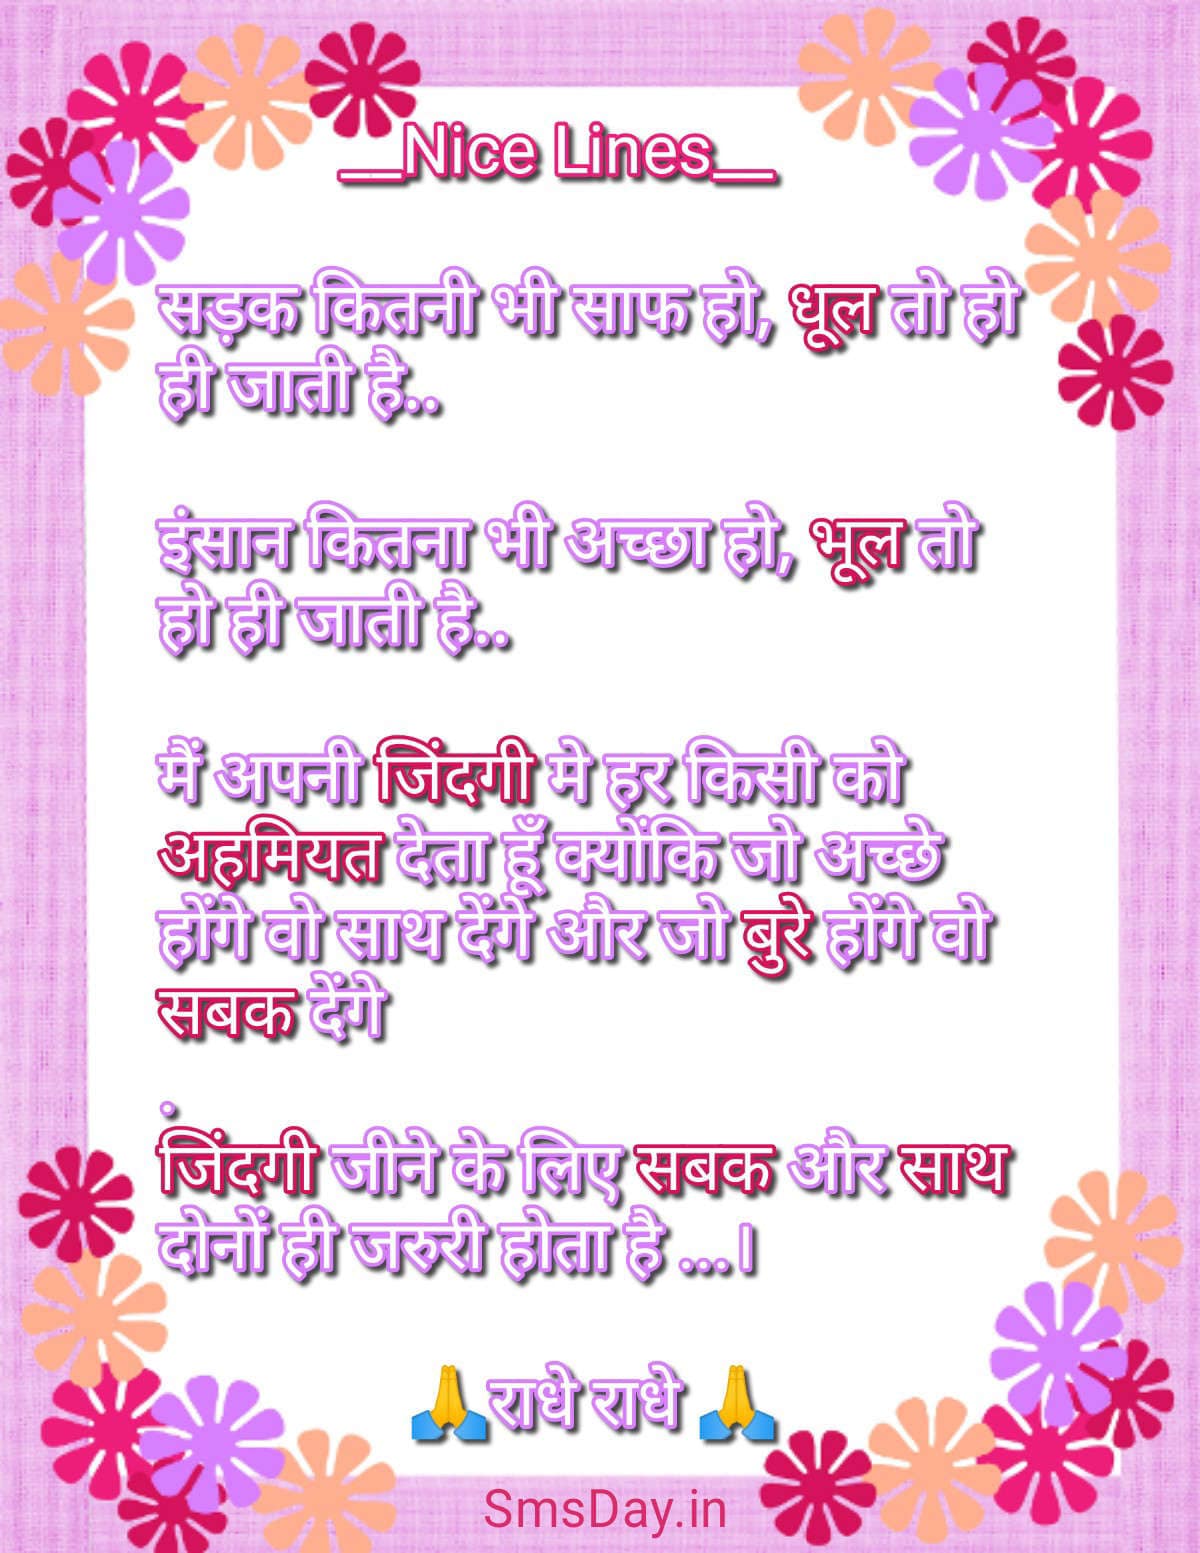 __Nice Lines__
सड़क कितनी भी साफ हो, धूल तो हो
ही जाती है..
इंसान कितना भी अच्छा हो, भूल तो
हो ही जाती है..
मैं अपनी जिंदगी मे हर किसी को
अहमियत देता हूँ क्योंकि जो अच्छे
होंगे वो साथ देंगे और जो बुरे होंगे वो
सबक देंगे
.
जिंदगी जीने के लिए सबक और साथ
दोनों ही जरुरी होता है ...।
🙏 राधे राधे 🙏
SmsDay.in